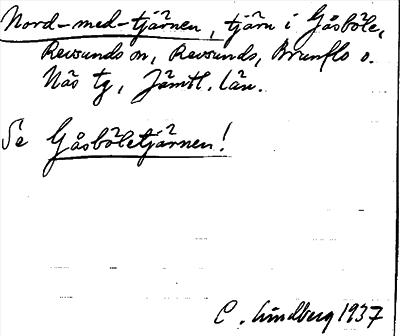 Nord-med-tjärnen, tjärn i Gåsböle,
Revsunds sn, Revsunds, Brunflo o.
Näs tg, Jämtl. län.
Se Gåsböletjärnen!
C. Lindberg 1937